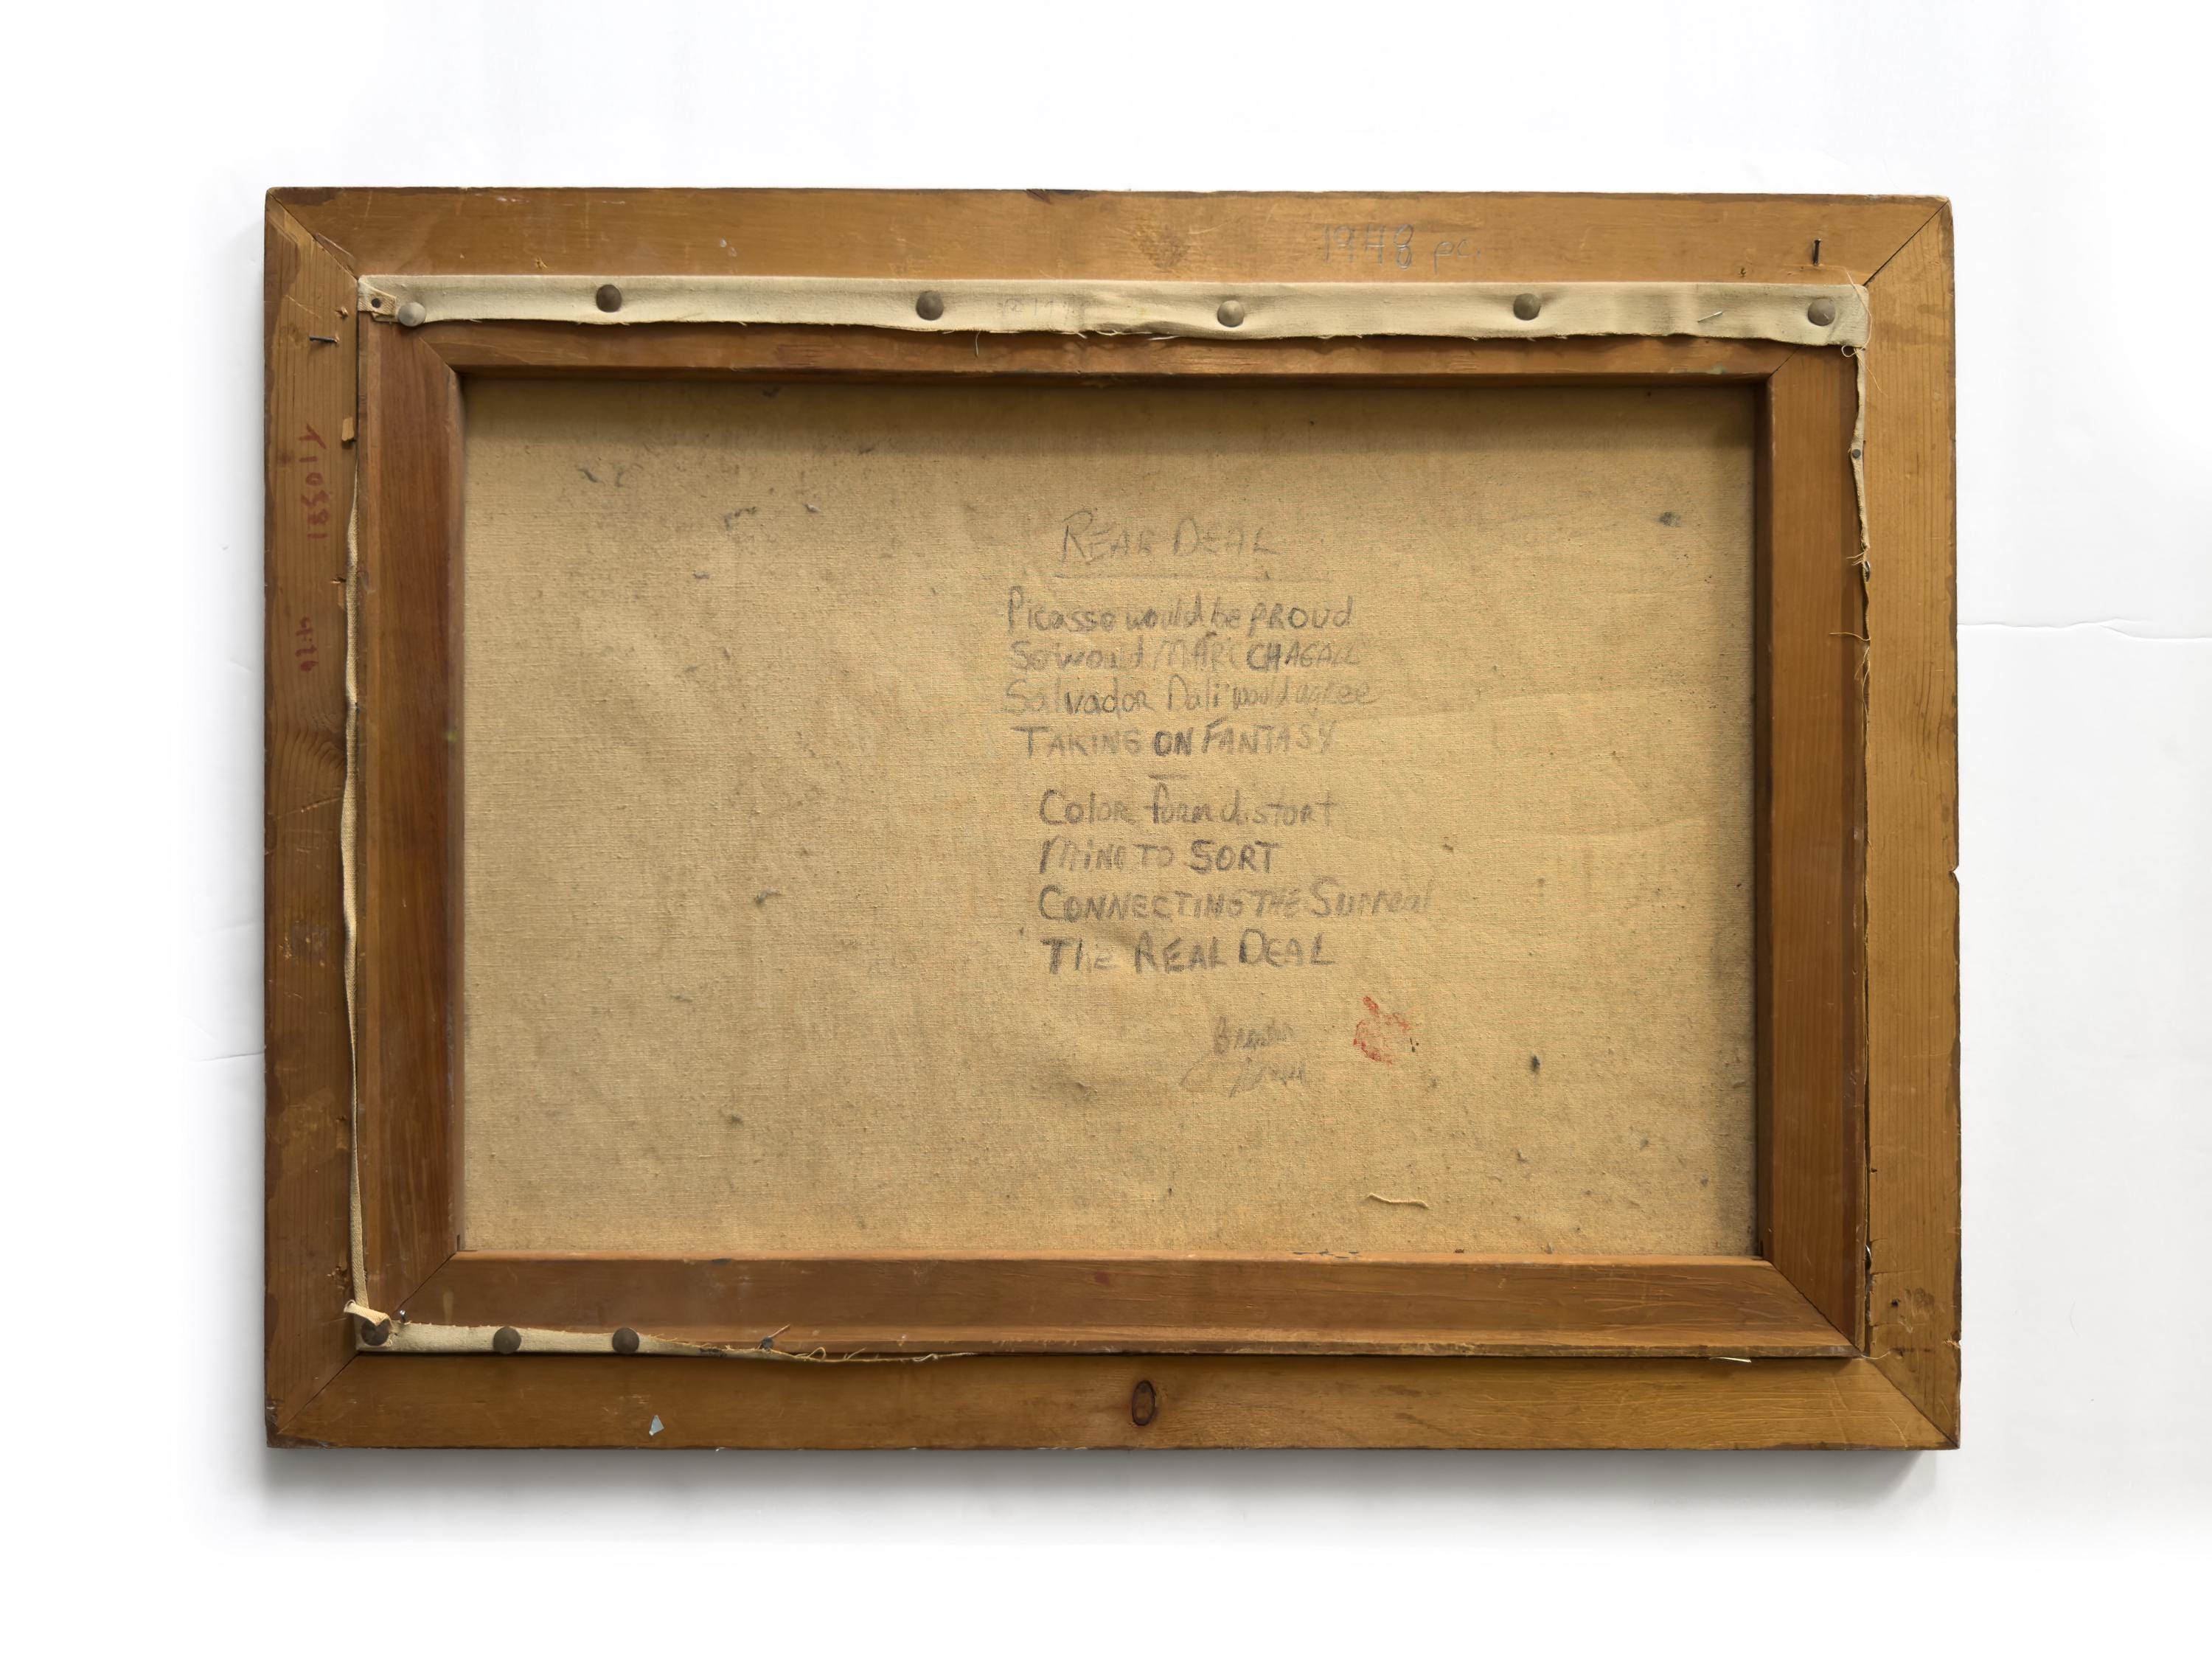 1948 pc.
REAL DEAL
Picasso would be PROUD
So would MARC CHAGALL
Salvador Dali would agree
TAKING ON FANTASY
Color form distort
MIND TO SORT
CONNECTING THE Surreal
The REAL DEAL